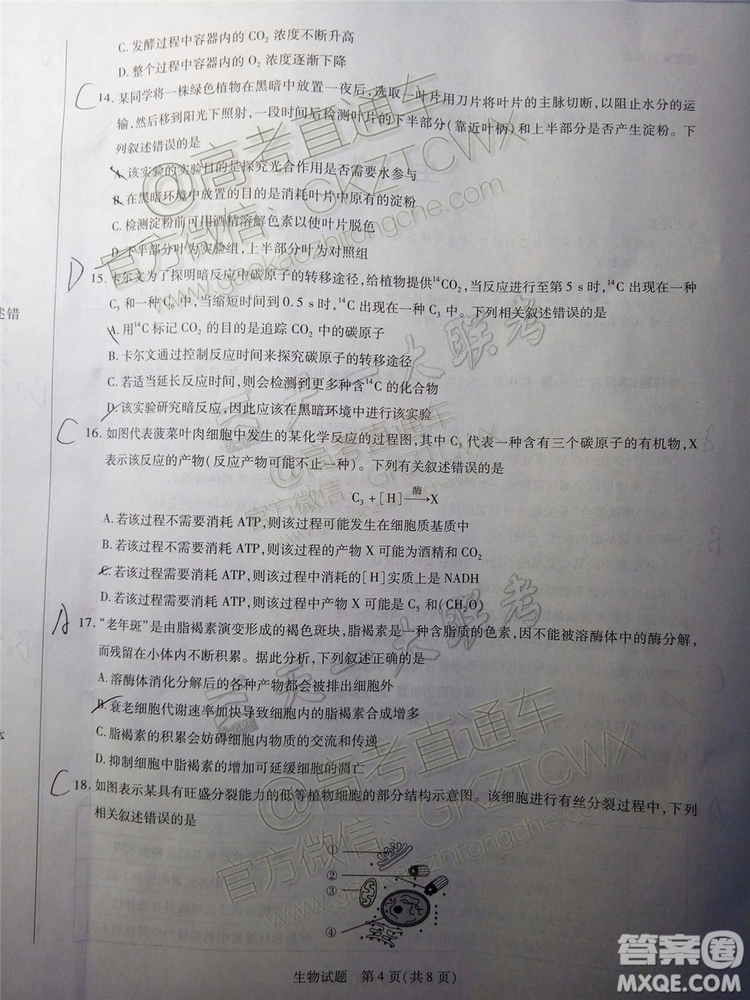 C. 发酵过程中容器内的 CO2 浓度不断升高
D. 整个过程中容器内的 O2 浓度逐渐下降
C
14. 某同学将一株绿色植物在黑暗中放置一夜后,选取一叶片用刀片将叶片的主脉切断,以阻止水分的运
输,然后移到阳光下照射,一段时间后检测叶片的下半部分(靠近叶柄)和上半部分是否产生淀粉。下
列叙述错误的是
A. 该实验的实验目的是探究光合作用是否需要水参与
B. 在黑暗环境中放置的目的是消耗叶片中原有的淀粉
C. 检测淀粉前可用酒精溶解色素以使叶片脱色
D. 下半部分叶为实验组,上半部分叶为对照组
D
15. 卡尔文为了探明暗反应中碳原子的转移途径,给植物提供14CO2,当反应进行至第 5 s 时,14C 出现在一种
述错
C5 和一种 C6 中,当缩短时间到 0.5 s 时,14C 出现在一种 C3 中。下列相关叙述错误的是
A. 用14C 标记 CO2 的目的是追踪 CO2 中的碳原子
B. 卡尔文通过控制反应时间来探究碳原子的转移途径
C. 若适当延长反应时间,则会检测到更多种含14C 的化合物
D. 该实验研究暗反应,因此应该在黑暗环境中进行该实验
C
16. 如图代表菠菜叶肉细胞中发生的某化学反应的过程图,其中 C3 代表一种含有三个碳原子的有机物,X
表示该反应的产物(反应产物可能不止一种)。下列有关叙述错误的是
C3 + [H] 酶→ X
A. 若该过程不需要消耗 ATP,则该过程可能发生在细胞质基质中
B. 若该过程不需要消耗 ATP,则该过程的产物 X 可能为酒精和 CO2
C. 若该过程需要消耗 ATP,则该过程中消耗的[H]实质上是 NADH
D. 若该过程需要消耗 ATP,则该过程的产物 X 可能是 C5 和(CH2O)
A
17. “老年斑”是由脂褐素演变形成的褐色斑块,脂褐素是一种含脂质的色素,因不能被溶酶体中的酶分解,
而残留在小体内不断积累。据此分析,下列叙述正确的是
A. 溶酶体消化分解后的各种产物都会被排出细胞外
B. 衰老细胞代谢速率加快导致细胞内的脂褐素合成增多
C. 脂褐素的积累会妨碍细胞内物质的交流和传递
D. 抑制细胞中脂褐素的增加可延缓细胞的凋亡
C
18. 如图表示某具有旺盛分裂能力的低等植物细胞的部分结构示意图。该细胞进行有丝分裂过程中,下列
相关叙述错误的是
①
②
③
④
生物试题 第 4 页(共 8 页)
@高考直通车
官方微信:GKZTCWX
www.gaokaozhitongche.com
天一大联考
天一大联考
@高考直通车
官方微信:GKZTCWX
答案圈
MXQE.COM